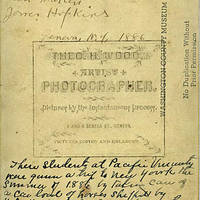 James Hopkins
Geneva, N.Y. 1886
THEO. H. WOOD,
ARTIST
PHOTOGRAPHER.
Pictures by the Instantaneous Process.
SENECA ST., GENEVA.
PICTURES COPIED AND ENLARGED.
WASHINGTON COUNTY MUSEUM
No Duplication Without
Prior Permission
These Students at Pacific University
were given a trip to New York the
Summer of 1886 by taking care of
a Car load of horses Shipped by